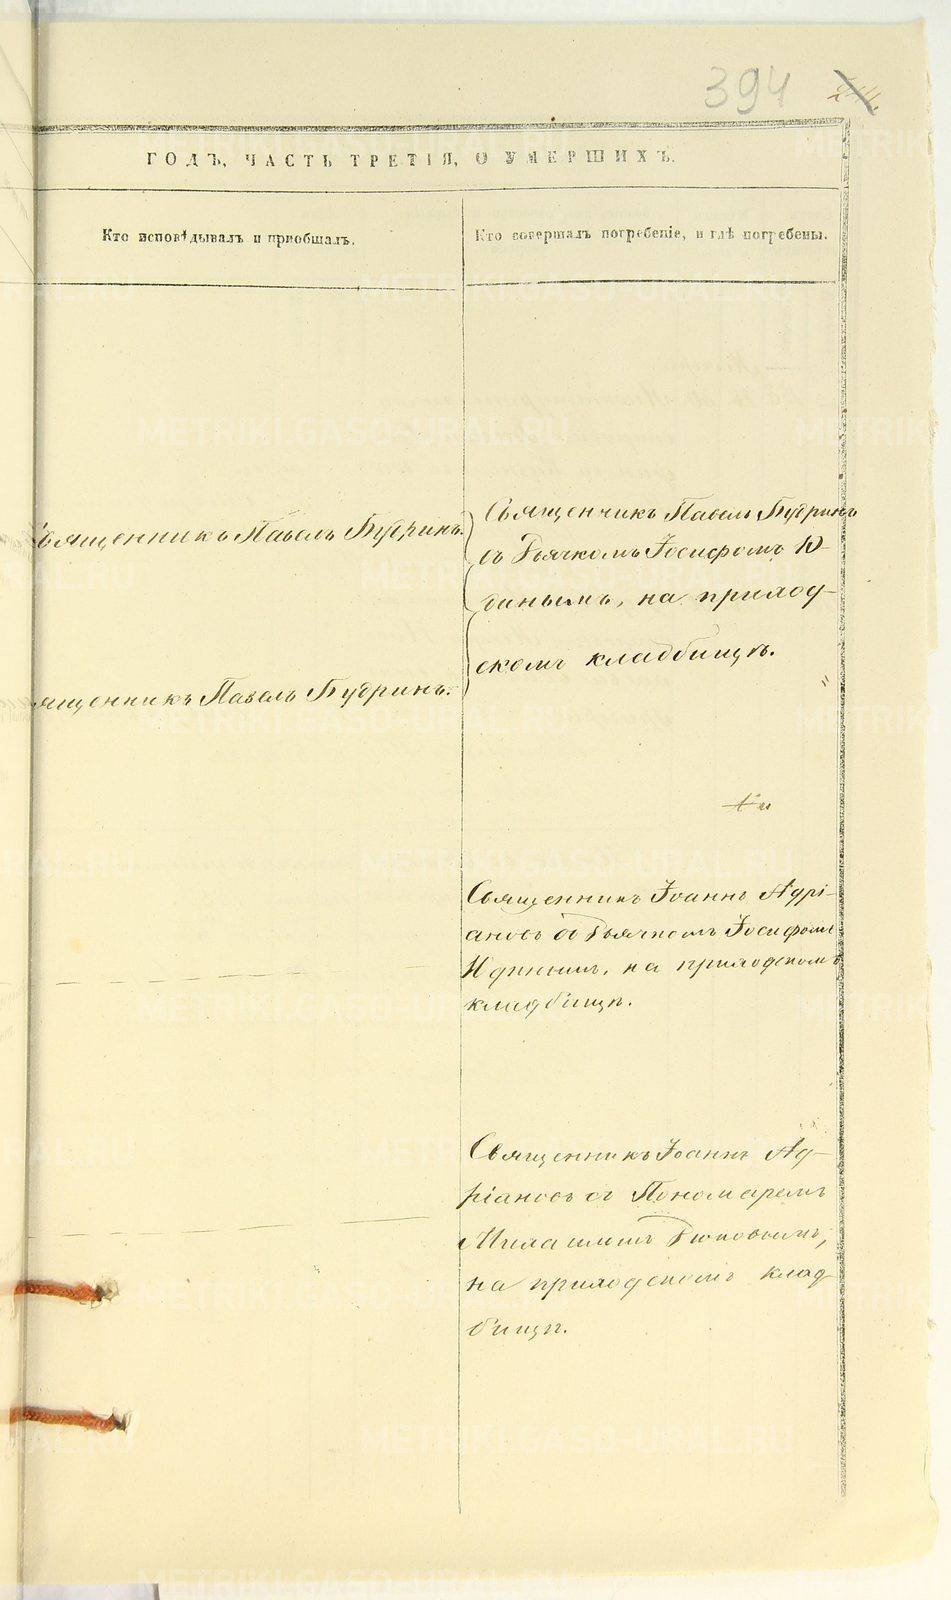 394
ГОДЪ, ЧАСТЬ ТРЕТІЯ, О УМЕРШИХЪ.
Кто исповѣдывалъ и пріобщалъ.
Кто совершалъ погребеніе, и гдѣ погребены.
Священникъ Павелъ Будринъ.
ященникъ Павелъ Будринъ.
Священникъ Павелъ Будринъ
съ Дьячкомъ Іосифомъ Ю-
динымъ, на приход-
скомъ кладбищѣ.
Священникъ Іоаннъ Адрі-
ановъ съ Дьячкомъ Іосифомъ
Юдинымъ, на приходскомъ
кладбищѣ.
Священникъ Іоаннъ Ад-
ріановъ съ Пономаремъ
на приходскомъ клад
бищѣ.
METRIKI.GASO-URAL.RU